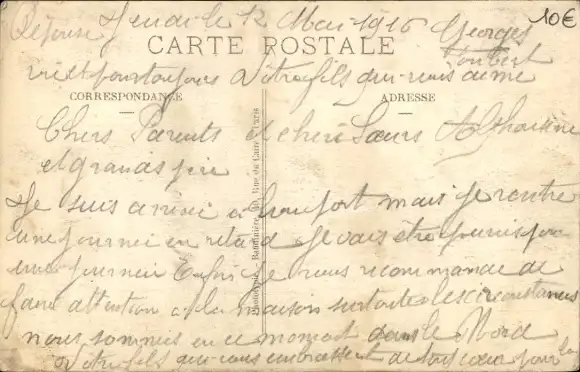 Réponse Jeudi le 12 Mai 1916 Georges
10€
CARTE POSTALE
vie et pour toujours Votre fils qui vous aime
CORRESPONDANCE
ADRESSE
Chers Parents et chère Sœurs
et grand père
Je suis arrivé a mais je rentre
une journée en retard Je vais être punis pour
une journée Enfin Je vous recommande de
faire attention a la maison surtout les circonstances
nous sommes en ce moment dans le Nord
Votre fils qui vous embrassent de tout cœur pour la
Rue du Caire Paris